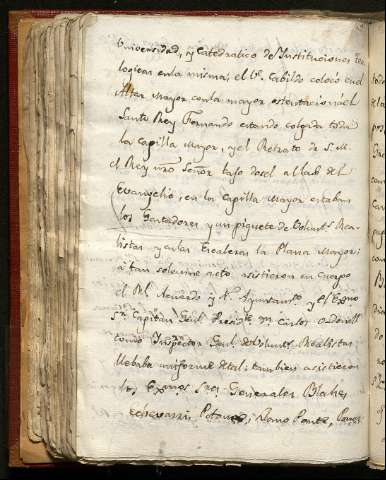 Universidad, y Catedratico de Instituciones Teo
logicas en la misma, el Ye. Cabildo colocó en el
Altar mayor con la mayor ostentacion al
Santo Rey Fernando estando colgada toda
la Capilla Mayor, y el Retrato de S. M.
el Rey nro Señor bajo dosel al lado del
Evangelio, en la Capilla Mayor estaban
los Gastadores, y un piquete de Volunts. Rea
listas y en las Escaleras la Plana Mayor:
á tan solemne acto asistieron en Cuerpo
el Rl. Acuerdo y Ayuntamto. y el Exmo
Sr. Capitan Genl. Presidte. Dn. Carlos Odonell
como Inspector Genl. de Volunts. Realistas
llebaba uniforme de tal: tambien asistieron
los Exmos. Sres. Generales Blake,
echevarri,